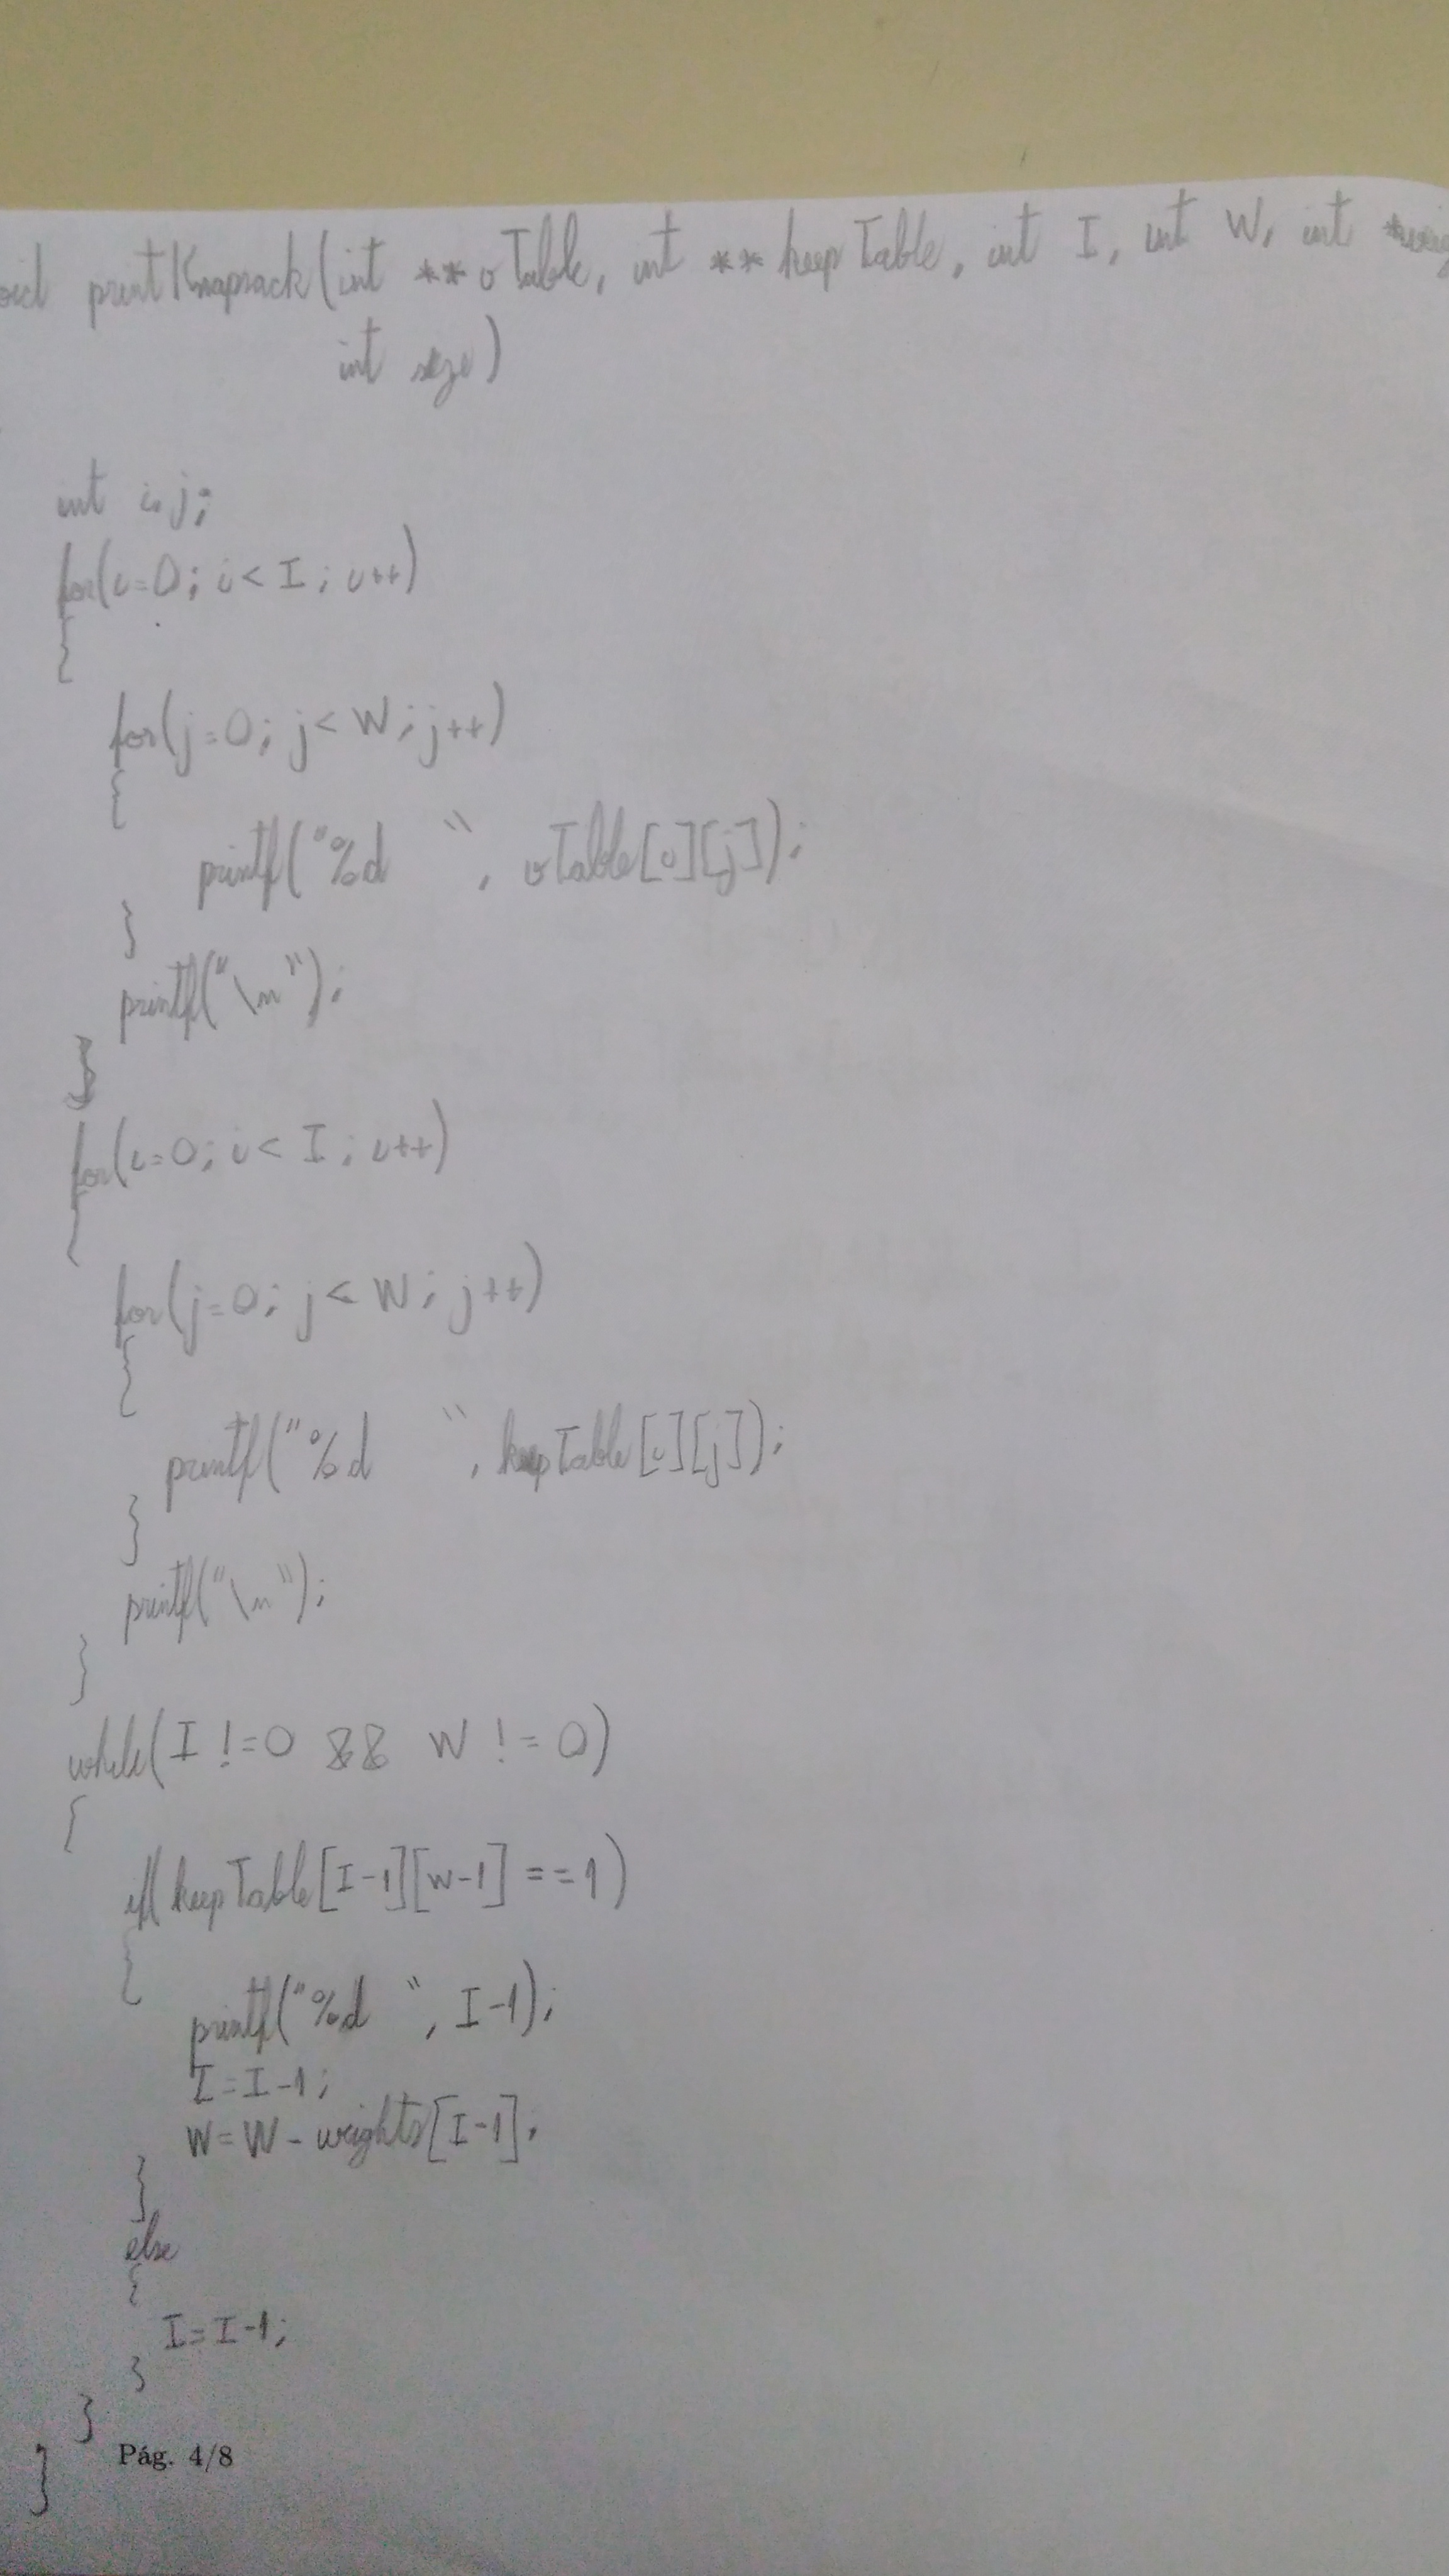 oid printKnapsack(int **vTable, int **keepTable, int I, int W, int *weig
int size)
int i, j;
for(i=0; i< I; i++)
{
for(j=0; j< W; j++)
{
printf("%d ", vTable[i][j]);
}
printf("\n");
}
for(i=0; i< I; i++)
{
for(j=0; j< W; j++)
{
printf("%d ", keepTable[i][j]);
}
printf("\n");
}
while(I !=0 && W != 0)
{
if(keepTable[I-1][W-1] ==1)
{
printf("%d ", I-1);
I=I-1;
W=W-weights[I-1];
}
else
{
I=I-1;
}
}
Pág. 4/8
}